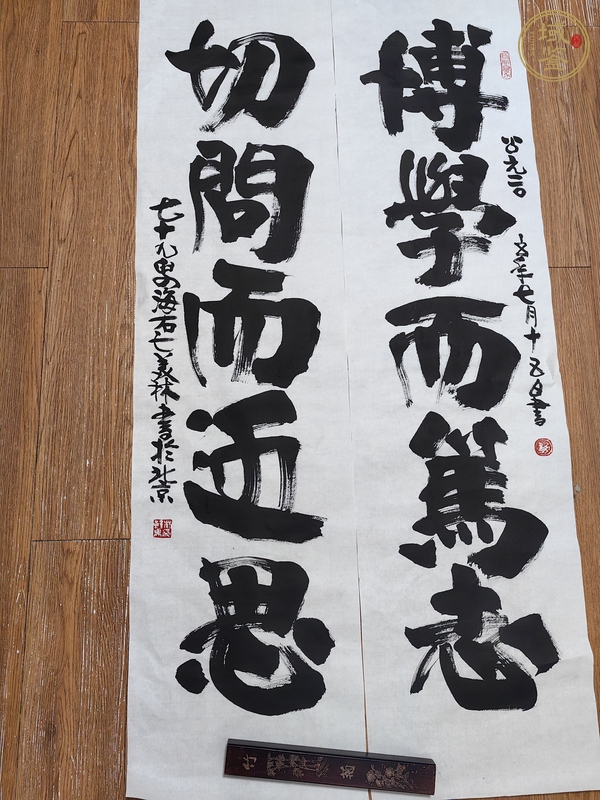 博學而篤志
公元二〇
年七月十五日書
切問而近思
七十九叟海右七美林書於北京
竹
菊